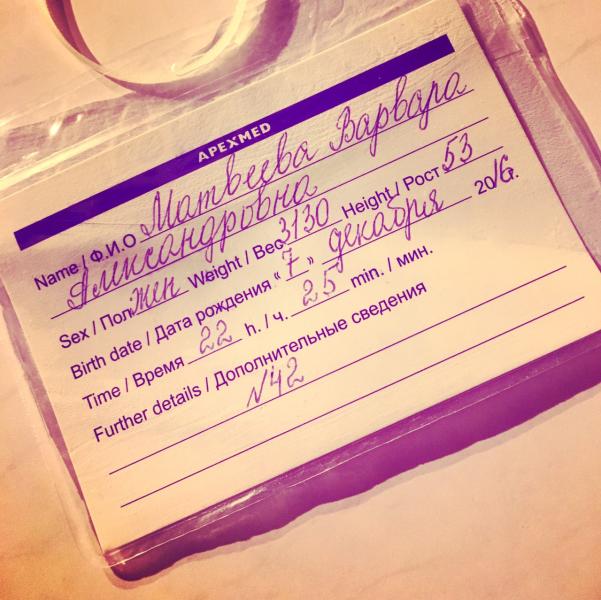 APEXMED
Name / Ф.И.О Матвеева Варвара
Александровна
Sex / Пол жен Weight / Вес 3130 Height / Рост 53
Birth date / Дата рождения “ 7 ” декабря 2016.
Time / Время 22 h. / ч. 25 min. / мин.
Further details / Дополнительные сведения
№42